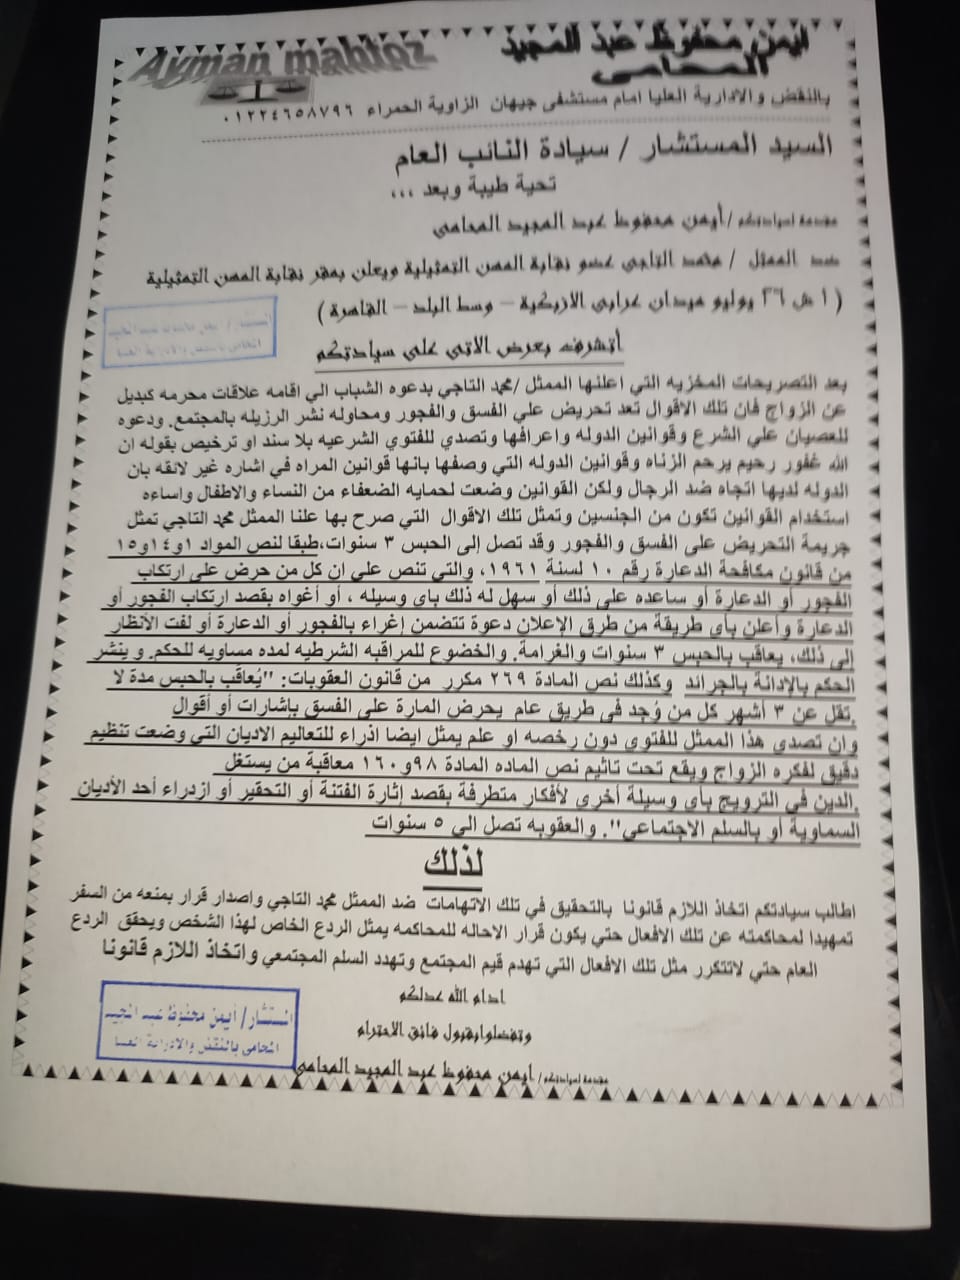 ايمن محفوظ عبد المجيد
Ayman mahfoz
المحامى
بالنقض والادارية العليا امام مستشفى جيهان الزاوية الحمراء ٠١٢٢٤٦٥٨٧٩٦
السيد المستشار / سيادة النائب العام
تحية طيبة وبعد ...
مقدمة لسيادتكم /أيمن محفوظ عبد المجيد المحامى
ضد الممثل / محمد التاجى عضو نقابة المهن التمثيلية ويعلن بمقر نقابة المهن التمثيلية
( ١ ش ٢٦ يوليو ميدان عرابى الازبكية – وسط البلد – القاهرة )
أتشرف بعرض الاتى على سيادتكم
بعد التصريحات المخزيه التي اعلنها الممثل /محمد التاجي بدعوه الشباب الي اقامه علاقات محرمه كبديل
عن الزواج فان تلك الاقوال تعد تحريض علي الفسق والفجور ومحاوله نشر الرزيله بالمجتمع. ودعوه
للعصيان علي الشرع وقوانين الدوله واعرافها وتصدي للفتوي الشرعيه بلا سند او ترخيص بقوله ان
الله غفور رحيم يرحم الزناه وقوانين الدوله التي وصفها بانها قوانين المراه في اشاره غير لائقه بان
الدوله لديها اتجاه ضد الرجال ولكن القوانين وضعت لحمايه الضعفاء من النساء والاطفال واساءه
استخدام القوانين تكون من الجنسين وتمثل تلك الاقوال التي صرح بها علنا الممثل محمد التاجي تمثل
جريمة التحريض على الفسق والفجور وقد تصل إلى الحبس ٣ سنوات،طبقا لنص المواد ١و١٤و١٥
من قانون مكافحة الدعارة رقم ١٠ لسنة ١٩٦١، والتي تنص على ان كل من حرض على ارتكاب
الفجور أو الدعارة أو ساعده على ذلك أو سهل له ذلك باى وسيله ، أو أغواه بقصد ارتكاب الفجور أو
الدعارة وأعلن بأى طريقة من طرق الإعلان دعوة تتضمن إغراء بالفجور أو الدعارة أو لفت الأنظار
إلى ذلك، يعاقب بالحبس ٣ سنوات والغرامة. والخضوع للمراقبه الشرطيه لمده مساويه للحكم. و ينشر
الحكم بالإدانة بالجرائد وكذلك نص المادة ٢٦٩ مكرر من قانون العقوبات: "يُعاقب بالحبس مدة لا
.تقل عن ٣ أشهر كل من وُجد فى طريق عام يحرض المارة على الفسق بإشارات أو أقوال
وان تصدى هذا الممثل للفتوى دون رخصه او علم يمثل ايضا اذراء للتعاليم الاديان التي وضعت تنظيم
دقيق لفكره الزواج ويقع تحت تاثيم نص الماده المادة ٩٨و١٦٠ معاقبة من يستغل
.الدين في الترويج بأى وسيلة أخرى لأفكار متطرفة بقصد إثارة الفتنة أو التحقير أو ازدراء أحد الأديان
السماوية أو بالسلم الاجتماعى". والعقوبه تصل الي ٥ سنوات
لذلك
اطالب سيادتكم اتخاذ اللازم قانونا بالتحقيق في تلك الاتهامات ضد الممثل محمد التاجي واصدار قرار بمنعه من السفر
تمهيدا لمحاكمته عن تلك الافعال حتي يكون قرار الاحاله للمحاكمه يمثل الردع الخاص لهذا الشخص ويحقق الردع
العام حتي لاتتكرر مثل تلك الافعال التي تهدم قيم المجتمع وتهدد السلم المجتمعي واتخاذ اللازم قانونا
ادام الله عدلكم
وتفضلوا بقبول فائق الاحترام
مقدمة لسيادتكم/ ايمن محفوظ عبد المجيد المحامى
المستشار/ أيمن محفوظ عبد المجيد
المحامى بالنقض والادارية العليا